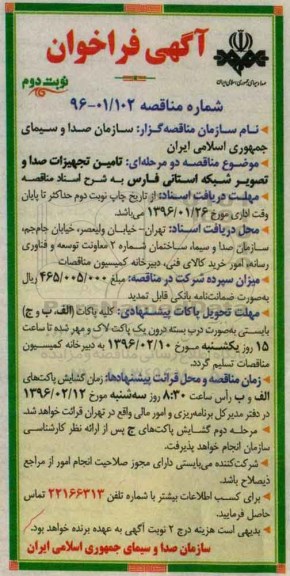 آگهی فراخوان
صدا و سیمای جمهوری اسلامی ایران
نوبت دوم
شماره مناقصه ۹۶-۰۱/۱۰۲
نام سازمان مناقصه‌گزار: سازمان صدا و سیمای
جمهوری اسلامی ایران
موضوع مناقصه دو مرحله‌ای: تامین تجهیزات صدا و
تصویر شبکه استانی فارس به شرح اسناد مناقصه
مهلت دریافت اسناد: از تاریخ چاپ نوبت دوم حداکثر تا پایان
وقت اداری مورخ ۱۳۹۶/۰۱/۲۶ می‌باشد.
محل دریافت اسناد: تهران- خیابان ولیعصر، خیابان جام‌جم،
سازمان صدا و سیما، ساختمان شماره ۲ معاونت توسعه و فناوری
رسانه، امور خرید کالای فنی، دبیرخانه کمیسیون مناقصات
میزان سپرده شرکت در مناقصه: مبلغ ۴۶۵/۰۰۵/۰۰۰ ریال
به‌صورت ضمانت‌نامه بانکی قابل تمدید
مهلت تحویل پاکات پیشنهادی: کلیه پاکات (الف، ب و ج)
بایستی به‌صورت درب بسته درون یک پاکت لاک و مهر شده تا ساعت
۱۵ روز یکشنبه مورخ ۱۳۹۶/۰۲/۱۰ به دبیرخانه کمیسیون
مناقصات تسلیم گردد.
زمان مناقصه و محل قرائت پیشنهادها: زمان گشایش پاکت‌های
الف و ب رأس ساعت ۸:۳۰ روز سه‌شنبه مورخ ۱۳۹۶/۰۲/۱۲
در دفتر مدیرکل برنامه‌ریزی و امور مالی واقع در تهران قرائت خواهد شد.
مرحله دوم گشایش پاکت‌های ج پس از ارائه نظر کارشناسی
سازمان انجام خواهد پذیرفت.
شرکت‌کننده می‌بایستی دارای مجوز صلاحیت انجام امور از مراجع
ذیصلاح باشد.
برای کسب اطلاعات بیشتر با شماره تلفن ۲۲۱۶۶۳۱۳ تماس
حاصل فرمایید.
بدیهی است هزینه درج ۲ نوبت آگهی به عهده برنده خواهد بود.
سازمان صدا و سیمای جمهوری اسلامی ایران